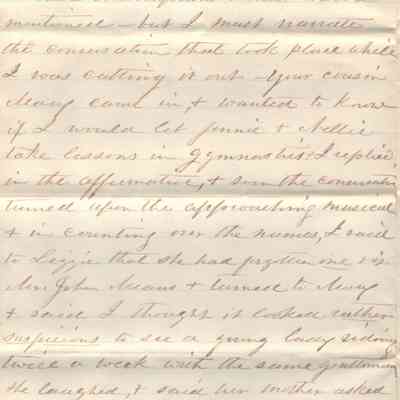 mentioned - but I must narrate
the conversation that took place while
I was cutting it out - your cousin
Mary came in, & wanted to know
if I would let Jennie & Nellie
take lessons in gymnastics. I replied,
in the affirmative, & soon the conversation
turned upon the approaching musical
& in counting over the names, I said
to Lizzie that she had forgotten one viz
Mr. John Means & turned to Mary
& said I thought it looked rather
suspicious to see a young lady riding
twice a week with the same gentleman
She laughed, & said her mother asked